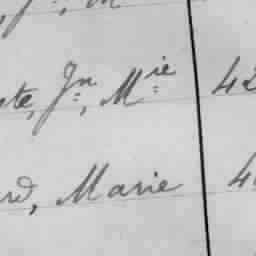 ste, Jn, Mie 42
rd, Marie 4